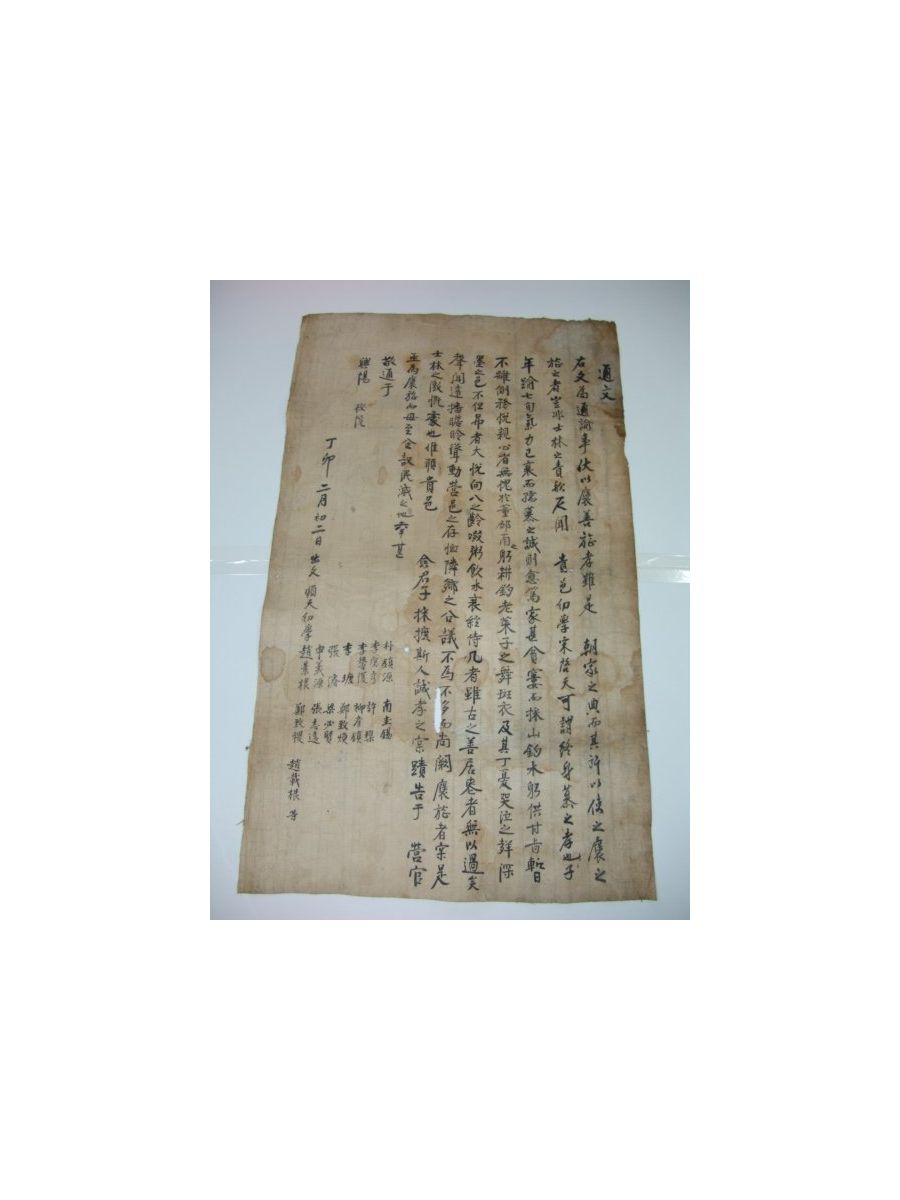 通文
右文爲通諭事伏以襃善旌孝雖是 朝家之典而其所以使之襃之
旌之者豈非士林之責歟仄聞 貴邑幼學宋啓天可謂終身慕之孝也子
年踰七旬氣力已衰而孺慕之誠則愈篤家甚貧窶而採山釣水躬供甘旨暫日
不離側務悅親心省無愧於董邵南之躬耕釣老萊子之舞斑衣及其丁憂哭泣之節深
墨之色不但吊者大悅向八之齡啜粥飮水衰絰侍几者雖古之善居喪者無以過矣
聲聞遠播瞻聆聳動營邑之存恤隣鄕之公議不爲不多而尙闕襃旌者寔是
士林之慨慨處也惟願貴邑 僉君子採摭斯人誠孝之實蹟告于 營官
亟爲襃旌而毋至全 泯滅之地 幸甚
敬通于
興陽 校院
丁卯二月初二日 出文 順天幼學
朴 源 南圭錫
李 許
李 柳 鎭
李 塘 鄭致煥
張 濟 梁必賢
申 源 張志遠
趙 根 鄭致
趙 根 等